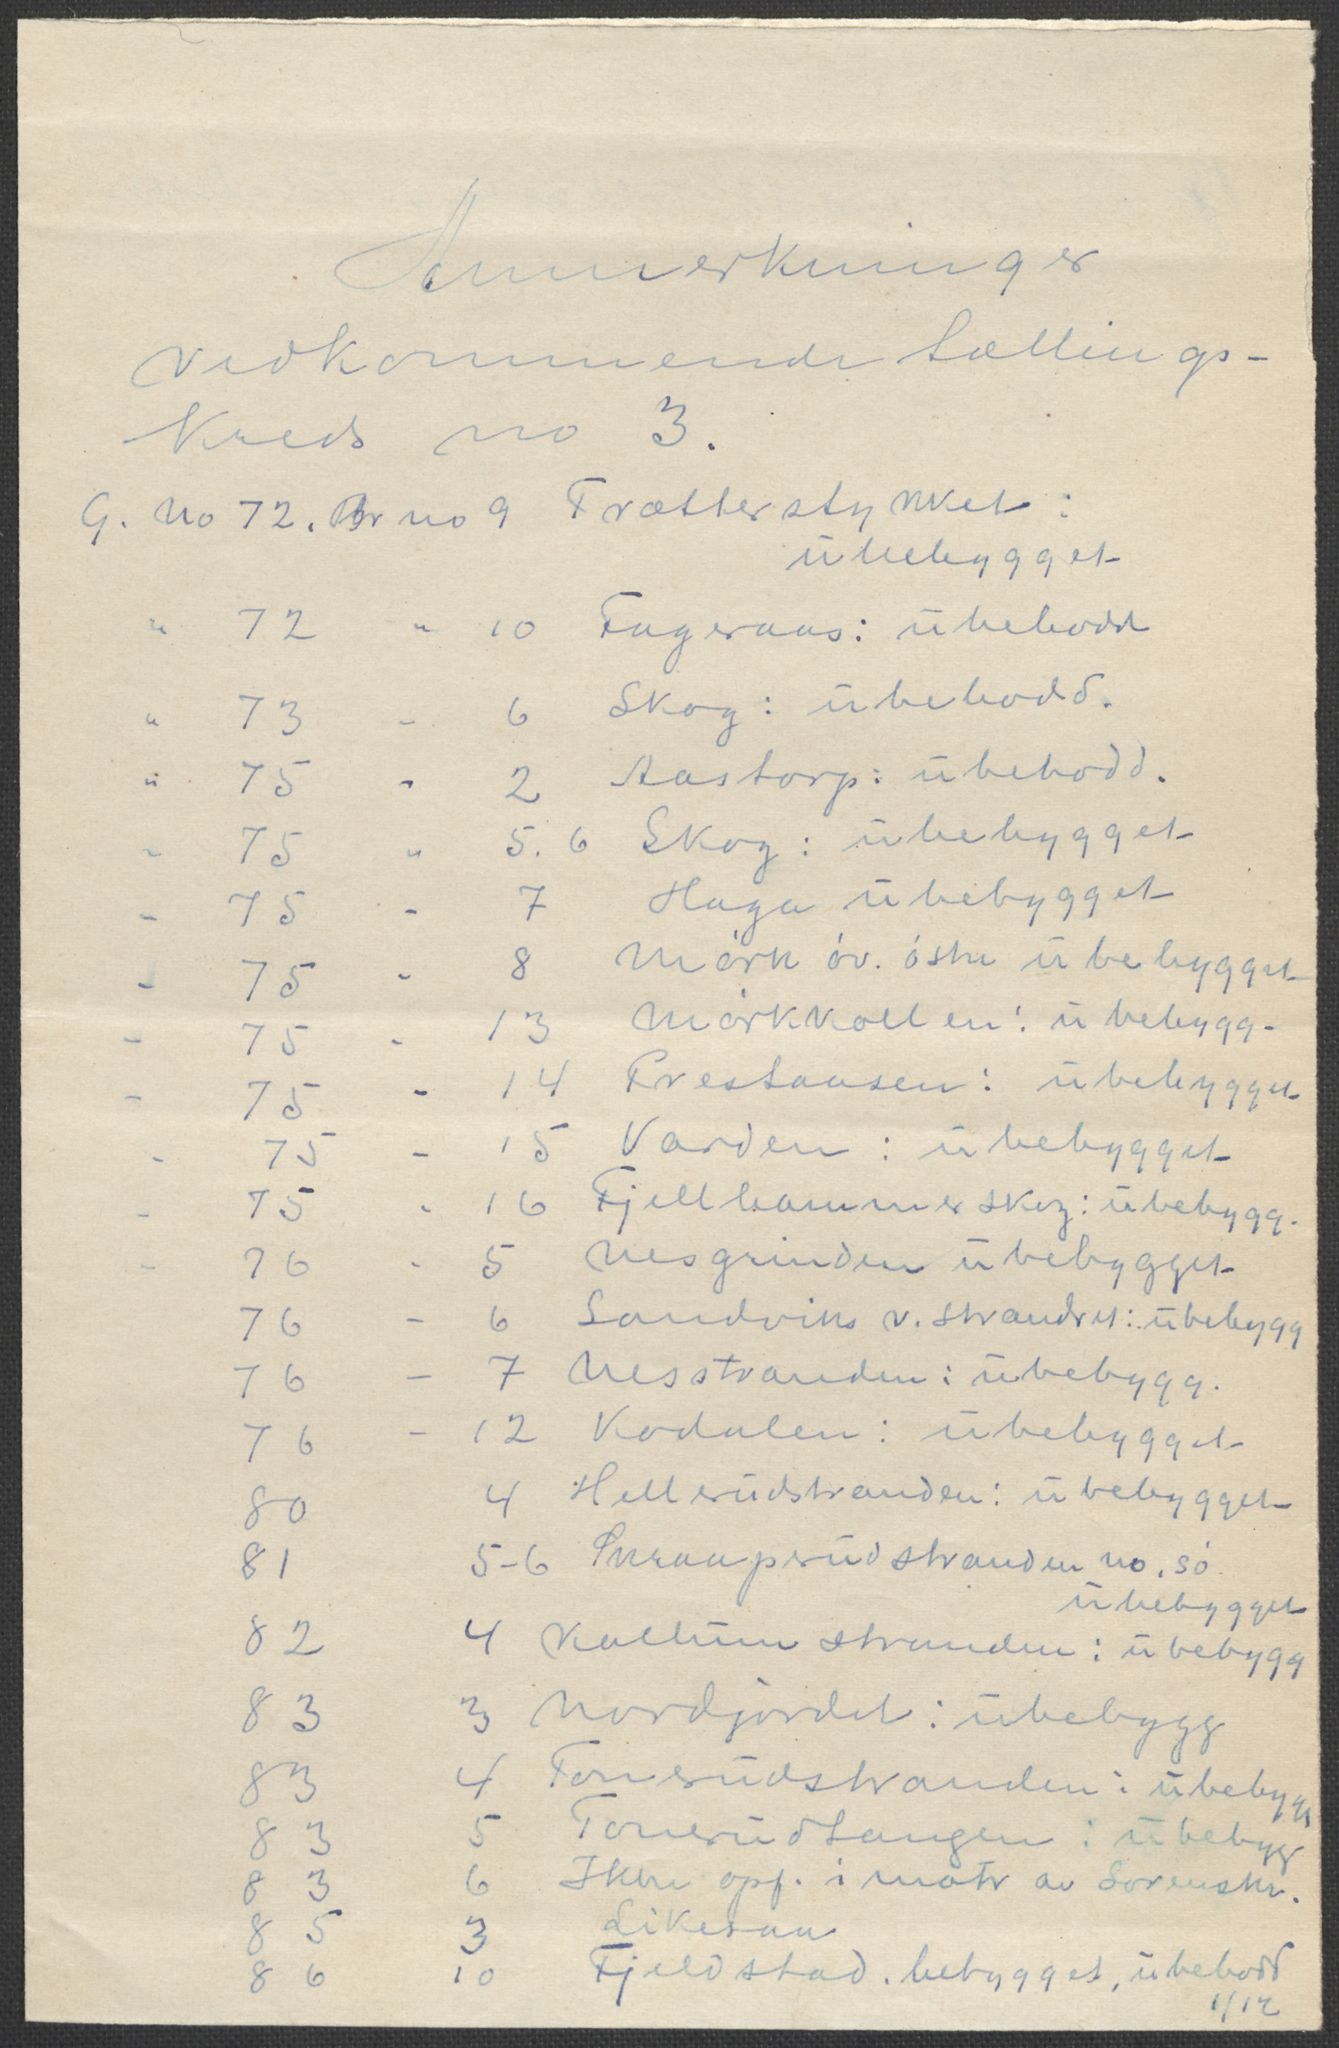 Anmerkninger
vedkommende tællings-
kreds no 3.
G. No 72. Br no 9 Trætterstykket:
ubebygget
" 72 " 10 Fageraas: ubebodd
" 73 - 6 Skog: ubebodd.
" 75 - 2 Aastorp: ubebodd.
" 75 " 5.6 Skog: ubebygget
- 75 - 7 Haga ubebygget
- 75 - 8 Mörk öv. östre ubebygget
- 75 - 13 Mörkkollen: ubebygg-
- 75 - 14 Prestaasen: ubebygget
- 75 - 15 Varden: ubebygget
- 75 - 16 Fjellhammerskog: ubebygg.
- 76 - 5 Nesgrinden ubebygget
76 - 6 Sandviks v. strandr: ubebygg
76 - 7 Nesstranden: ubebygg.
76 - 12 Kodalen: ubebygget
80 4 Hellerudstranden: ubebygget
81 5-6 Skraaperudstranden no. sö
ubebygget
82 4 Kallum stranden: ubebygg
83 3 Nordjordet: ubebygg
83 4 Tonerudstranden: ubebygg
83 5 Tonerudtangen: ubebygg
83 6 Ikke opf. i matr av Sorenskr.
85 3 Likesaa
86 10 Fjeldstad. bebygget, ubebodd
1/12